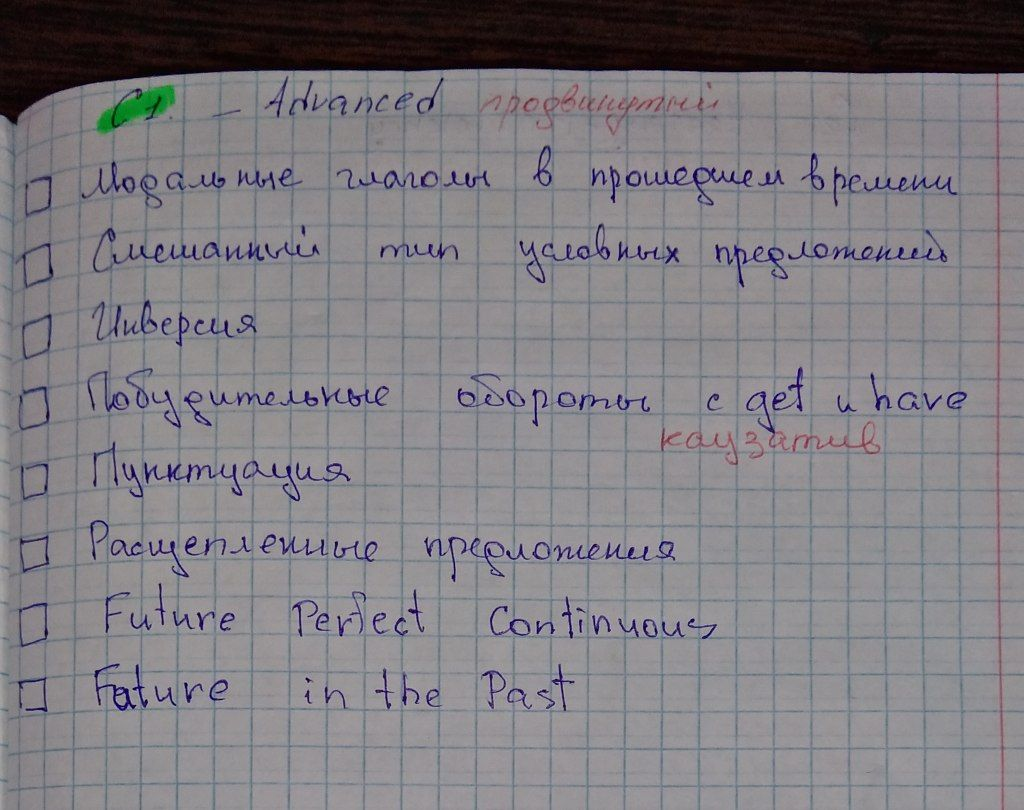 C1. - Advanced продвинутый
Модальные глаголы в прошедшем времени
Смешанный тип условных предложений
Инверсия
Побудительные обороты с get и have
каузатив
Пунктуация
Расщепленные предложения
Future Perfect Continuous
Fature in the Past